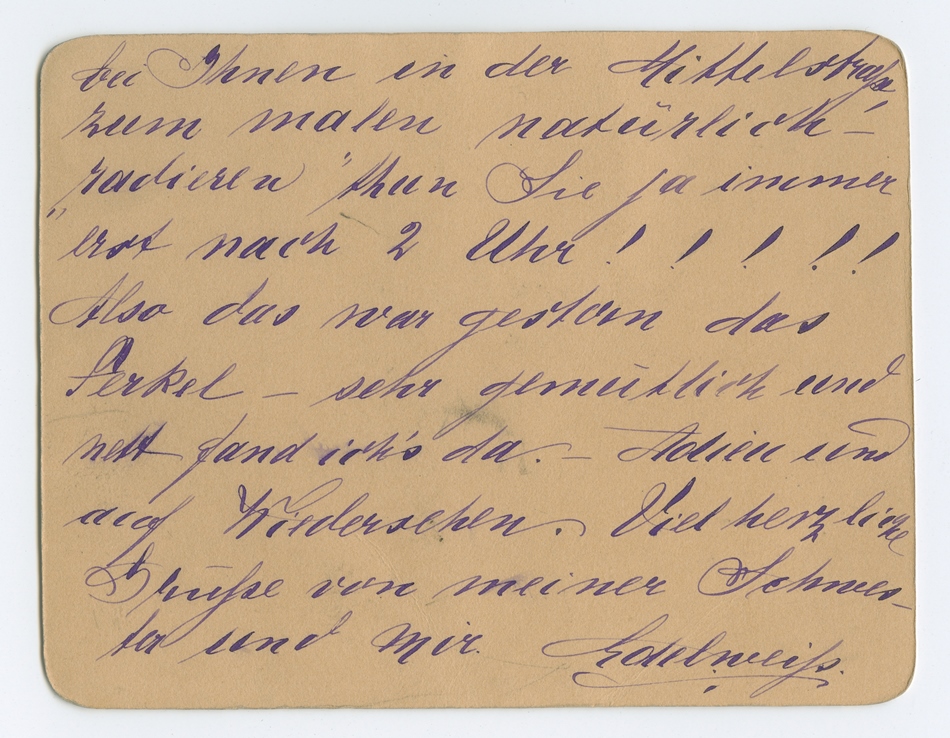 bei Ihnen in der Mittelstraße,
zum malen natürlich –
„radieren" thun Sie ja immer
erst nach 2 Uhr! ! ! ! !
Also das war gestern das
Ferkel – sehr gemütlich und
nett fand ich's da. – Adieu und
auf Wiedersehen. Viel herzliche
Grüße von meiner Schwes-
ter und mir. Edelweiß.